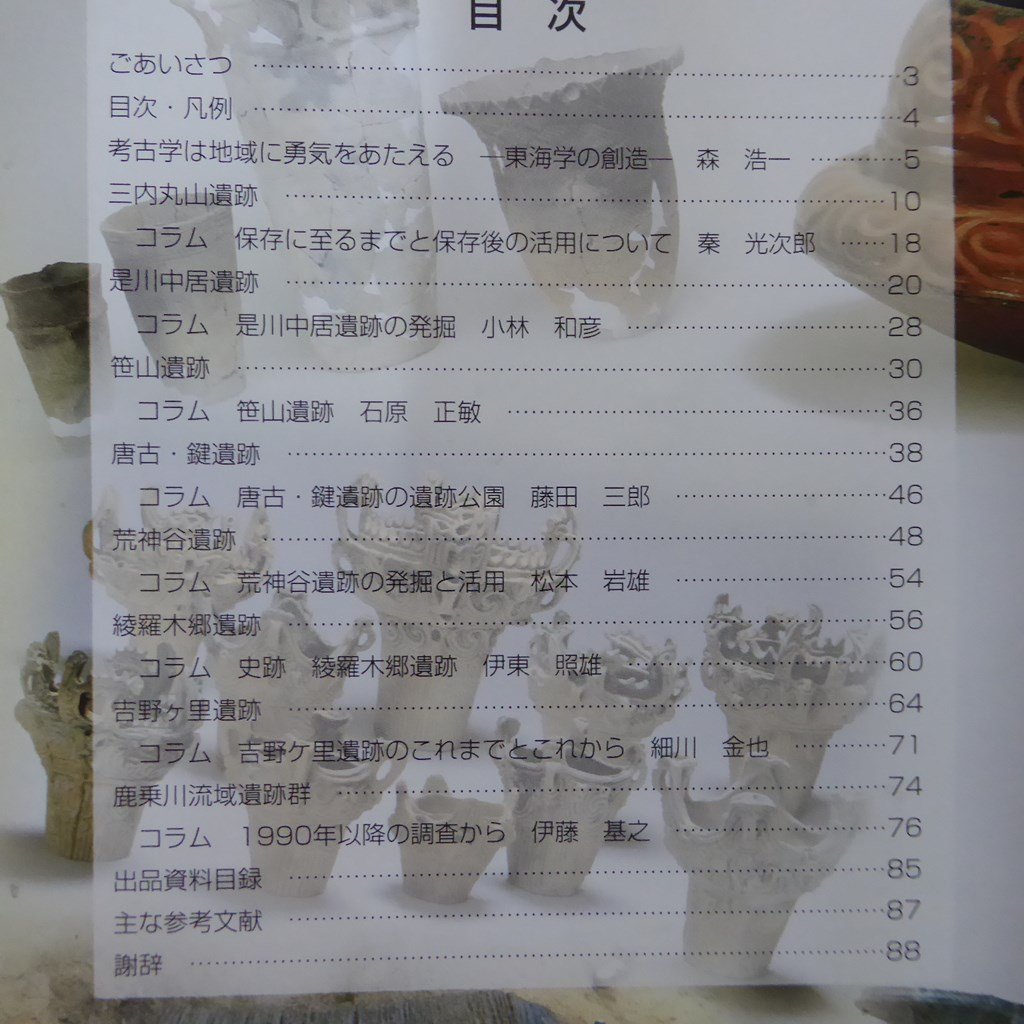 目 次
ごあいさつ ……………………………………………… 3
目次・凡例 ……………………………………………… 4
考古学は地域に勇気をあたえる ―東海学の創造― 森 浩一 ………… 5
三内丸山遺跡 ……………………………………………… 10
コラム 保存に至るまでと保存後の活用について 秦 光次郎 …… 18
是川中居遺跡 ……………………………………………… 20
コラム 是川中居遺跡の発掘 小林 和彦 ……………………… 28
笹山遺跡 ……………………………………………… 30
コラム 笹山遺跡 石原 正敏 ……………………………… 36
唐古・鍵遺跡 ……………………………………………… 38
コラム 唐古・鍵遺跡の遺跡公園 藤田 三郎 ………………… 46
荒神谷遺跡 ……………………………………………… 48
コラム 荒神谷遺跡の発掘と活用 松本 岩雄 ………………… 54
綾羅木郷遺跡 ……………………………………………… 56
コラム 史跡 綾羅木郷遺跡 伊東 照雄 ……………………… 60
吉野ヶ里遺跡 ……………………………………………… 64
コラム 吉野ケ里遺跡のこれまでとこれから 細川 金也 ………… 71
鹿乗川流域遺跡群 ……………………………………………… 74
コラム 1990年以降の調査から 伊藤 基之 ………………… 76
出品資料目録 ……………………………………………… 85
主な参考文献 ……………………………………………… 87
謝辞 ……………………………………………… 88